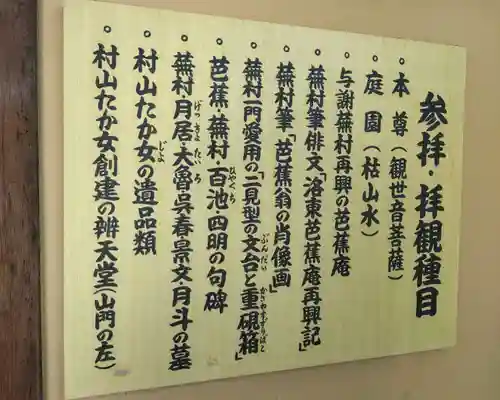 参拝・拝観種目
。本尊（観世音菩薩）
。庭園（枯山水）
。与謝蕪村再興の芭蕉庵
。蕪村筆 俳文「洛東芭蕉庵再興記」
。蕪村筆「芭蕉翁の肖像画」
。蕪村一門愛用の「二見型の文台と重硯箱」
ぶんだい かさねすずりばこ
。芭蕉・蕪村・百池・四明の句碑
ひゃくち
。蕪村・月居・大魯・呉春・景文・月斗の墓
げっきょ たいろ
。村山たか女の遺品類
じょ
。村山たか女創建の辨天堂（山門の左）